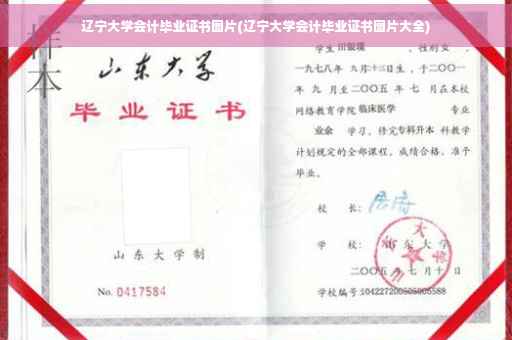 辽宁大学会计毕业证书图片(辽宁大学会计毕业证书图片大全)
样本
山东大学
毕业证书
山东大学制
No. 0417584
学生 田银瑛 ，性别 女 ，
一九七八年 九月十三日生，于二〇〇一
年 九 月至二〇〇五 年 七 月在本校
网络教育学院 临床医学 专业
业余 学习，修完专科升本 科教学
计划规定的全部课程，成绩合格，准予
毕业。
校 长：
学 校： 山东大学
二〇〇五 年 七 月 十 日
学校编号:104227200505005588